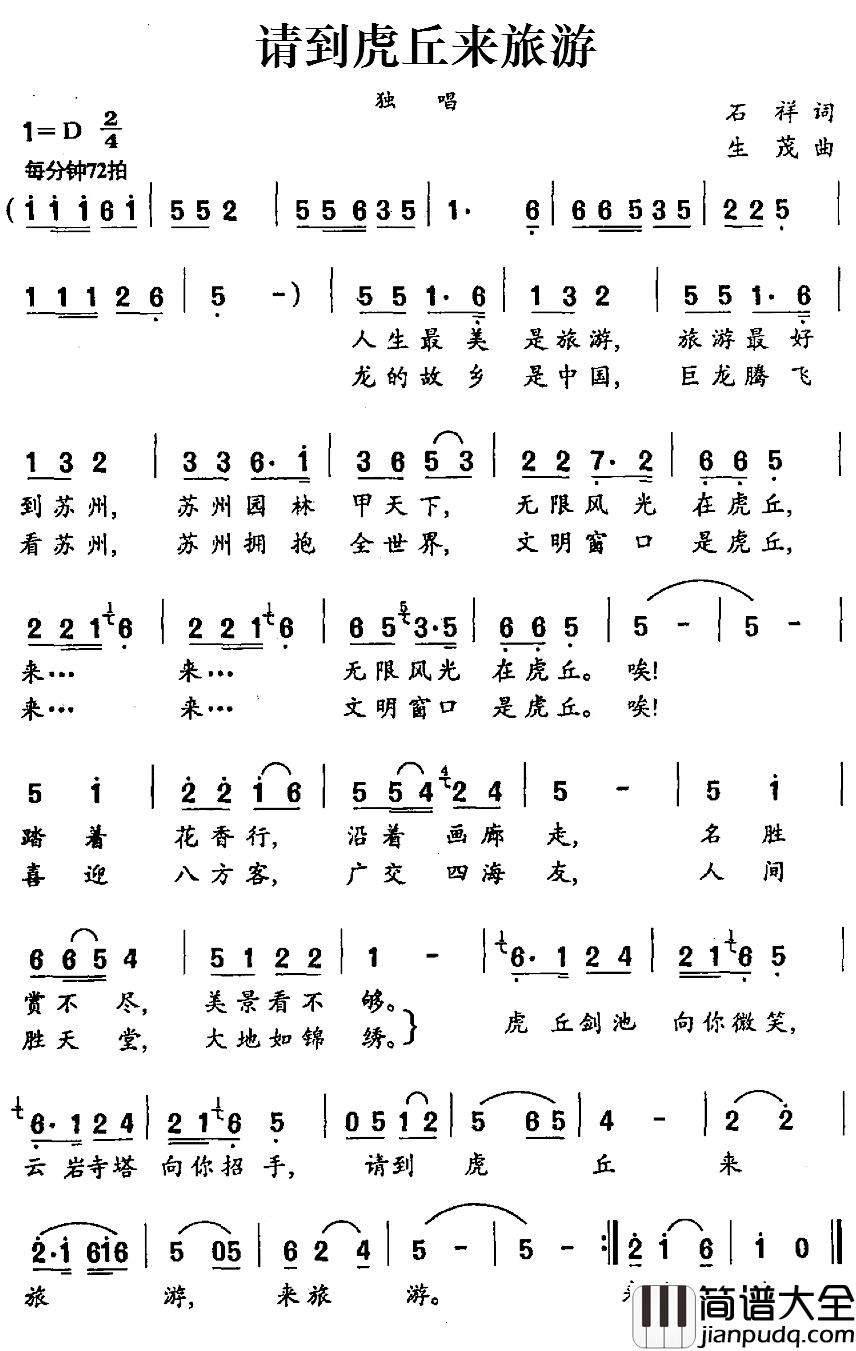 请到虎丘来旅游
独 唱
石 祥 词
1=D 2/4
生 茂 曲
每分钟72拍
(1 1 1 6 1 | 5 5 2 | 5 5 6 3 5 | 1· 6 | 6 6 5 3 5 | 2 2 5 |
1 1 1 2 6 | 5 -) | 5 5 1· 6 | 1 3 2 | 5 5 1· 6 |
人生最美 是旅游, 旅游最好
龙的故乡 是中国, 巨龙腾飞
1 3 2 | 3 3 6· 1 | 3 6 5 3 | 2 2 7· 2 | 6 6 5 |
到苏州, 苏州园林 甲天下, 无限风光 在虎丘,
看苏州, 苏州拥抱 全世界, 文明窗口 是虎丘,
2 2 1 1 6 | 2 2 1 1 6 | 6 5 5 3·5 | 6 6 5 | 5 - | 5 - |
来… 来… 无限风光 在虎丘。 唉!
来… 来… 文明窗口 是虎丘。 唉!
5 1 | 2 2 1 6 | 5 5 4 4 2 4 | 5 - | 5 1 |
踏着 花香行, 沿着画廊 走, 名胜
喜迎 八方客, 广交四海 友, 人间
6 6 5 4 | 5 1 2 2 | 1 - | 1 6· 1 2 4 | 2 1 1 6 5 |
赏不尽, 美景看不 够。
虎丘剑池 向你微笑,
胜天堂, 大地如锦 绣。}
1 6· 1 2 4 | 2 1 1 6 5 | 0 5 1 2 | 5 6 5 | 4 - | 2 2 |
云岩寺塔 向你招手, 请到 虎 丘 来
2·1 6 1 6 | 5 0 5 | 6 2 4 | 5 - | 5 - :‖ 2 1 6 | 1 0 ‖
旅 游, 来旅 游。
简谱大全
jianpudq.com